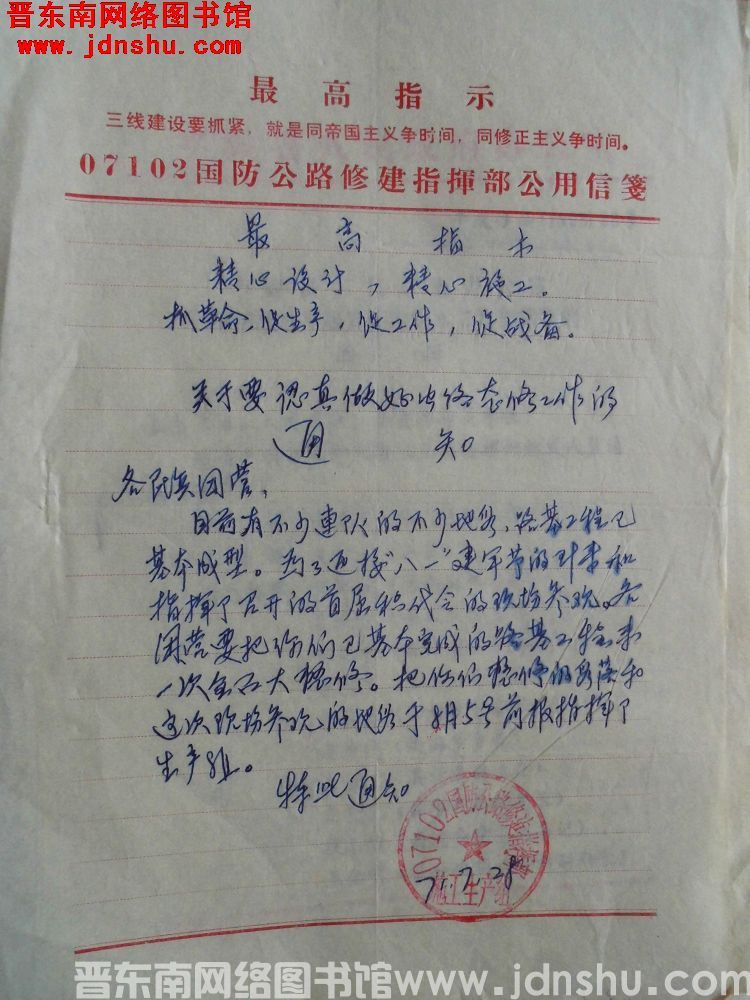 晋东南网络图书馆
www.jdnshu.com
最高指示
三线建设要抓紧，就是同帝国主义争时间，同修正主义争时间。
07102国防公路修建指挥部公用信箋
最高指示
精心设计，精心施工。
抓革命、促生产，促工作，促战备。
关于要認真做好公路整修工作的
通知
各民兵团营：
目前有不少連队的不少地段，路基工程已
基本成型。为了迎接"八一"建军节的到来和
指挥部召开的首届积代会的现场参观。各
团营要把你们已基本完成的路基工程来
一次全面大整修。把你们整修的段落和
这次现场参观的地段于8月5号前报指挥部
生产组。
特此通知
07102国防公路修建指挥部
施工生产组
71.7.28
晋东南网络图书馆www.jdnshu.com